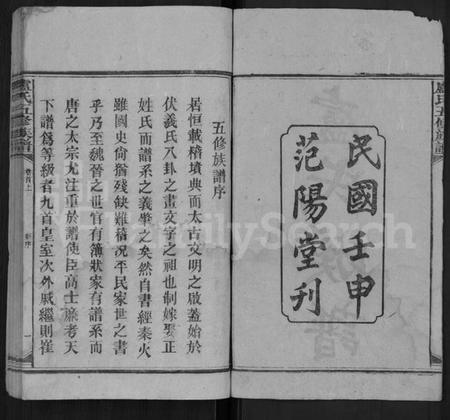 民國壬申
范陽堂刊
盧氏五修族譜
五修族譜序
居恒載稽墳典而太古文明之啟蓋始於
伏羲氏八卦之畫文字之祖也制嫁娶正
姓氏而譜系之義肇之矣然自書經秦火
雖國史尙猶殘缺難稽况平民家世之書
乎乃至魏晉之世官有簿狀家有譜系而
唐之太宗尤注重於譜使臣高士廉考天
下譜爲等級者九首皇室次外戚繼則崔
盧氏五修族譜
卷首上
新序
一
FamilySearch